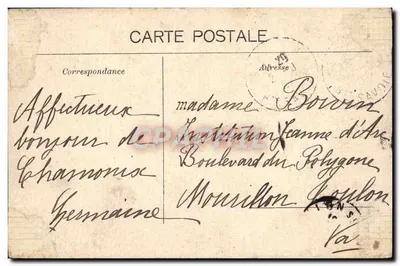 CARTE POSTALE
Correspondance
Adresse
29
Affectueux
bonjour de
Chamonix
Germaine
madame Boivin
Institution Jeanne d'Arc
Boulevard du Polygone
Mourillon Toulon
Var